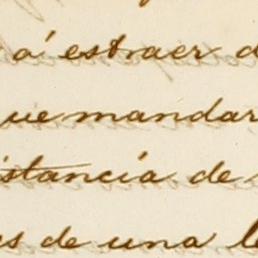 á estraer d
ue mandar
istancia de
es de una l